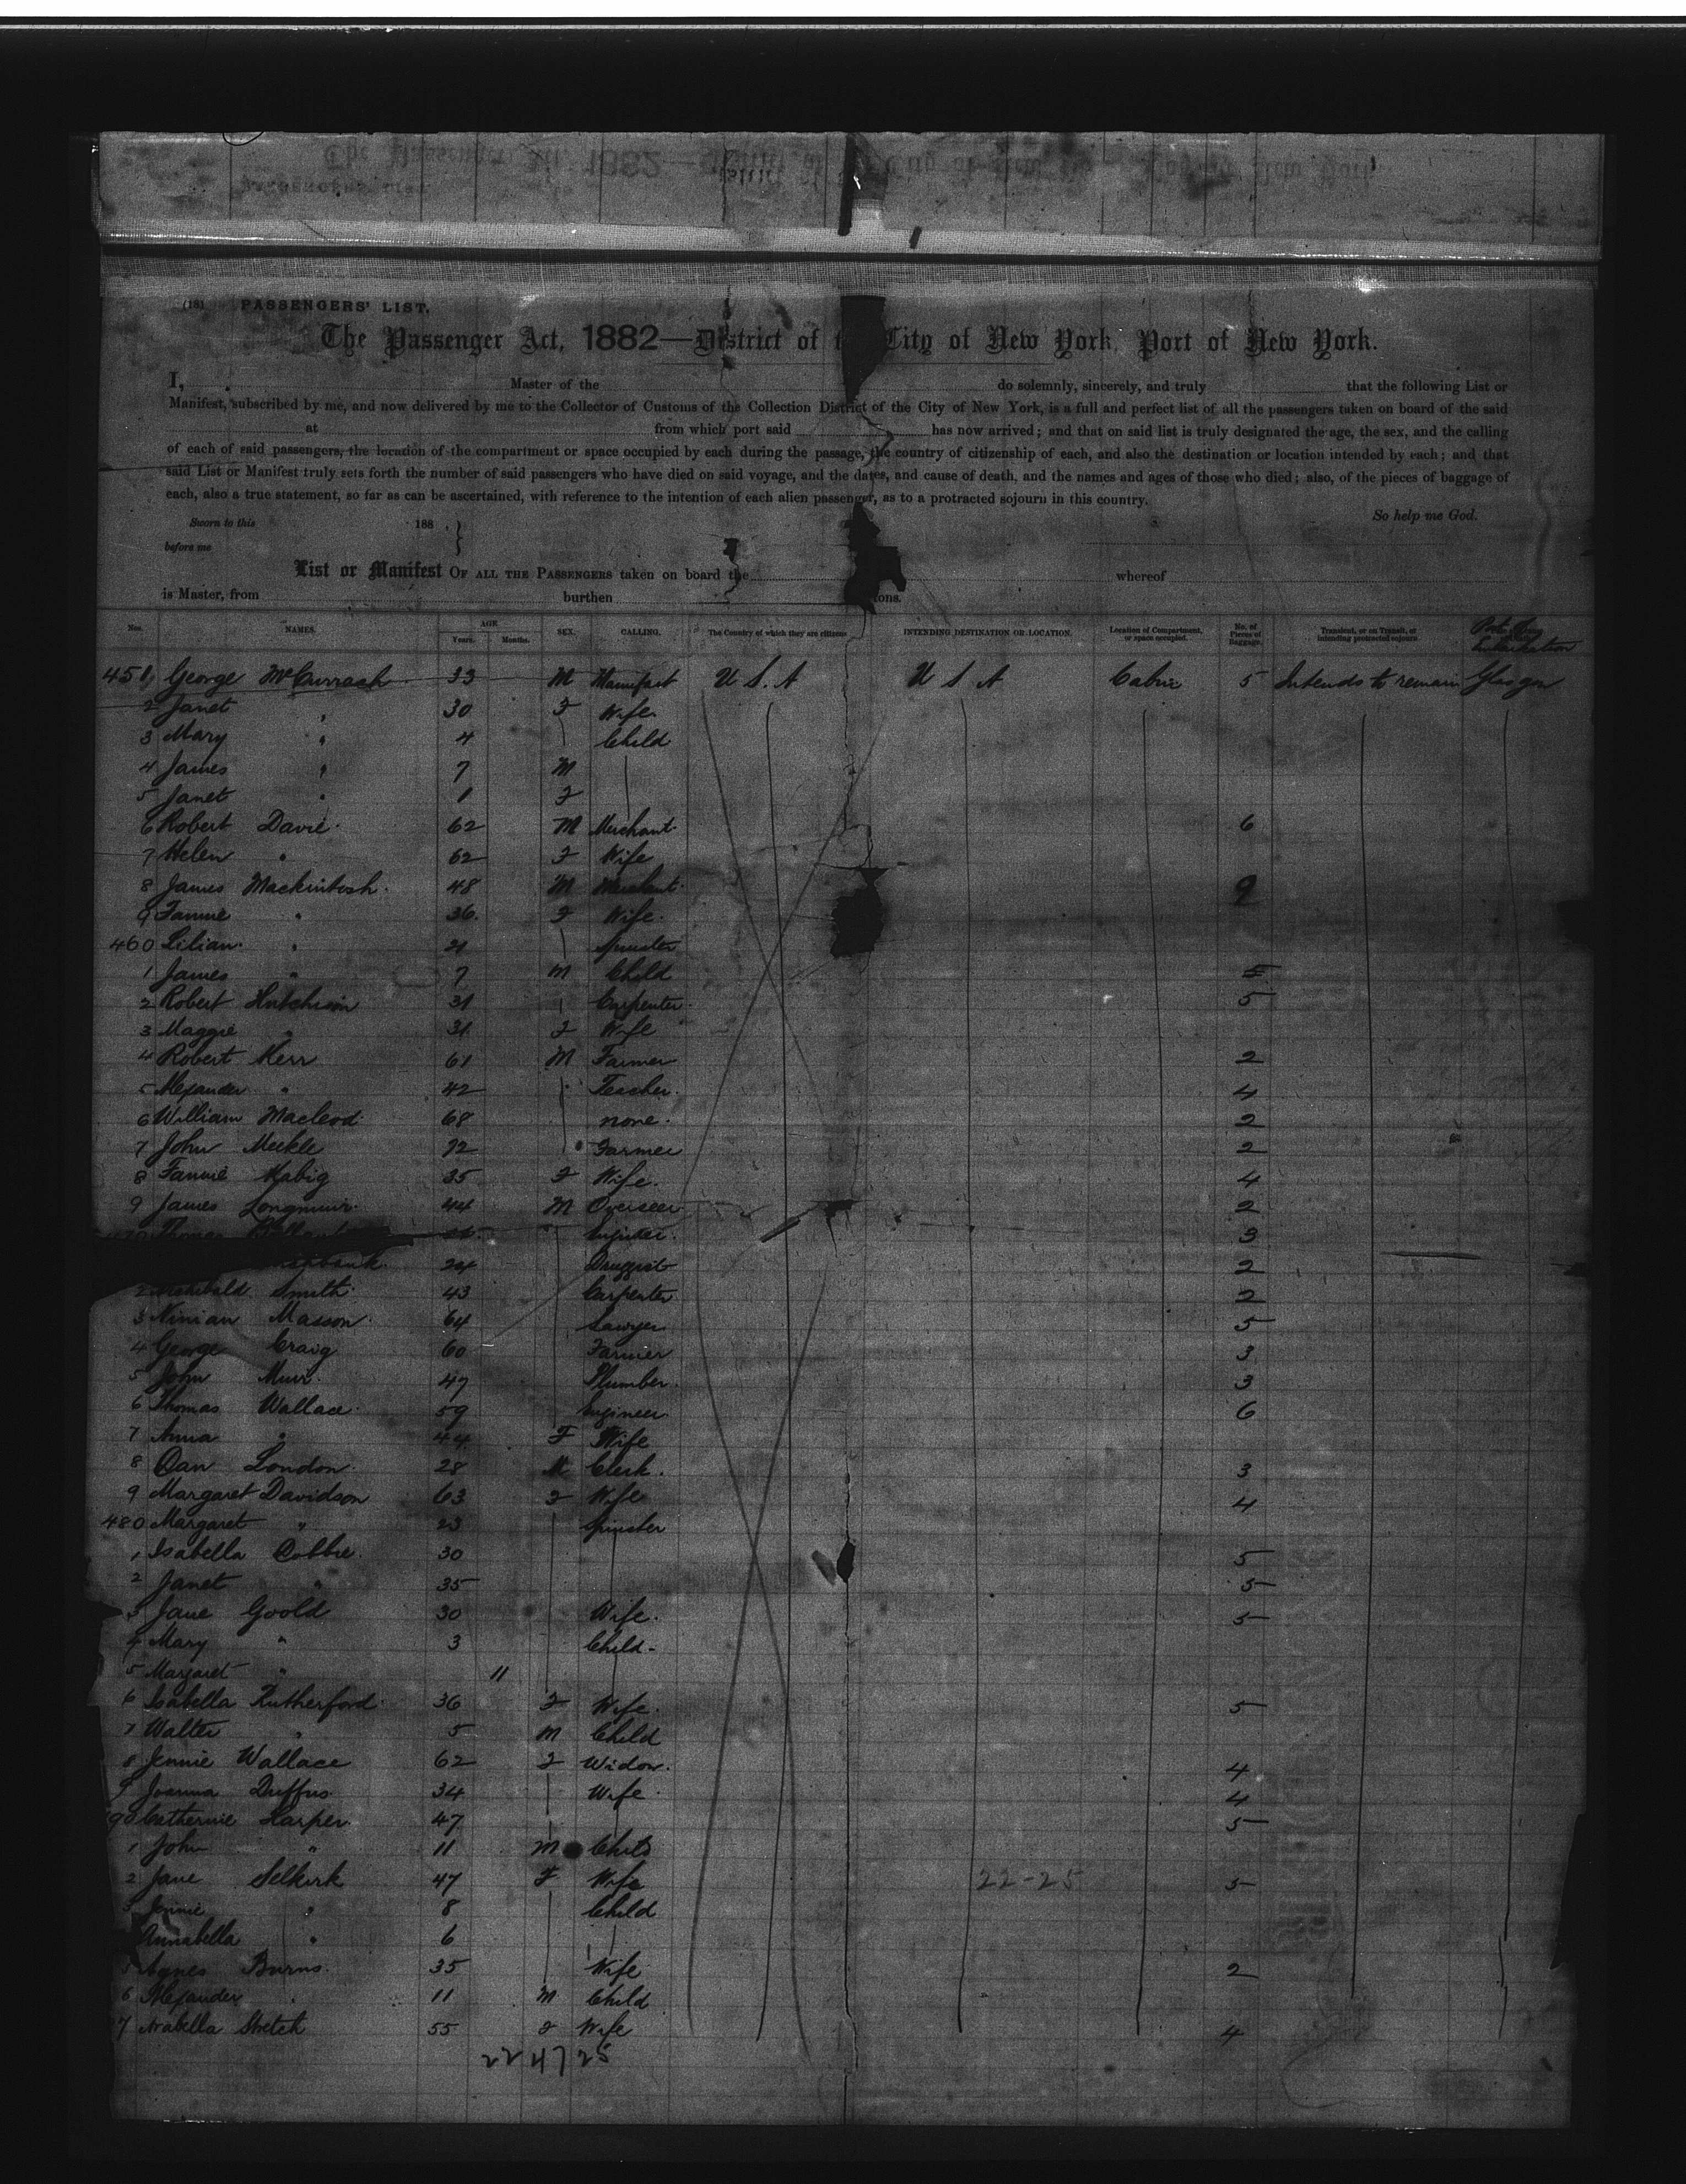 (18) PASSENGERS' LIST.
The Passenger Act, 1882—District of City of New York, Port of New York.
I, Master of the do solemnly, sincerely, and truly that the following List or
Manifest, subscribed by me, and now delivered by me to the Collector of Customs of the Collection District of the City of New York, is a full and perfect list of all the passengers taken on board of the said
at from which port said has now arrived; and that on said list is truly designated the age, the sex, and the calling
of each of said passengers, the location of the compartment or space occupied by each during the passage, the country of citizenship of each, and also the destination or location intended by each; and that
said List or Manifest truly sets forth the number of said passengers who have died on said voyage, and the dates, and cause of death, and the names and ages of those who died; also, of the pieces of baggage of
each, also a true statement, so far as can be ascertained, with reference to the intention of each alien passenger, as to a protracted sojourn in this country.
So help me God.
Sworn to this 188 }
before me
List or Manifest OF ALL THE PASSENGERS taken on board the whereof
is Master, from burthen tons.
Nos. NAMES. AGE Years. Months. SEX. CALLING. The Country of which they are citizens INTENDING DESTINATION OR LOCATION. Location of Compartment, or space occupied. No. of Pieces of Baggage. Transient, or on Transit, or intending protracted sojourn.
451 George McCurrach 33 M Manufact U S. A U S A Cabin 5 Intends to remain Glasgow
2 Janet " 30 F Wife
3 Mary " 4 Child
4 James " 7 M
5 Janet " 1 F
6 Robert Davie 62 M Merchant 6
7 Helen " 62 F Wife
8 James Mackintosh 48 M Merchant 9
9 Fannie " 36 F Wife
460 Lilian " 21 Spinster
1 James " 7 M Child
2 Robert Hutchison 31 Carpenter 5
3 Maggie " 31 F Wife
4 Robert Kerr 61 M Farmer 2
5 Alexander " 42 Teacher 4
6 William Macleod 68 none. 2
7 John Meikle 72 Farmer 2
8 Fannie 35 F Wife. 4
9 James Longmuir 44 M Overseer 2
Thomas 3
24 Druggist 2
2 Archibald Smith 43 Carpenter 2
3 Ninian Masson 64 Sawyer 5
4 George Craig 60 Farmer 3
5 John Muir 47 Plumber 3
6 Thomas Wallace 59 Engineer 6
7 Anna " 44 F Wife
8 Dan London 28 M Clerk. 3
9 Margaret Davidson 63 F Wife 4
480 Margaret " 23 Spinster
1 Isabella Cobbie 30 5
2 Janet " 35 5
3 Jane Goold 30 Wife. 5
4 Mary " 3 Child
5 Margaret " 11
6 Isabella Rutherford 36 F Wife. 5
7 Walter " 5 M Child
8 Jennie Wallace 62 F Widow. 4
9 Joanna Duffus 34 Wife 4
90 Catherine Harper 47 5
1 John " 11 M Child
2 Jane Selkirk 47 F Wife 22-25 5
3 Jennie " 8 Child
Annabella " 6
5 Agnes Burns 35 Wife 2
6 Alexander " 11 M Child
7 Arabella Stretch 55 F Wife 4
22 47 25